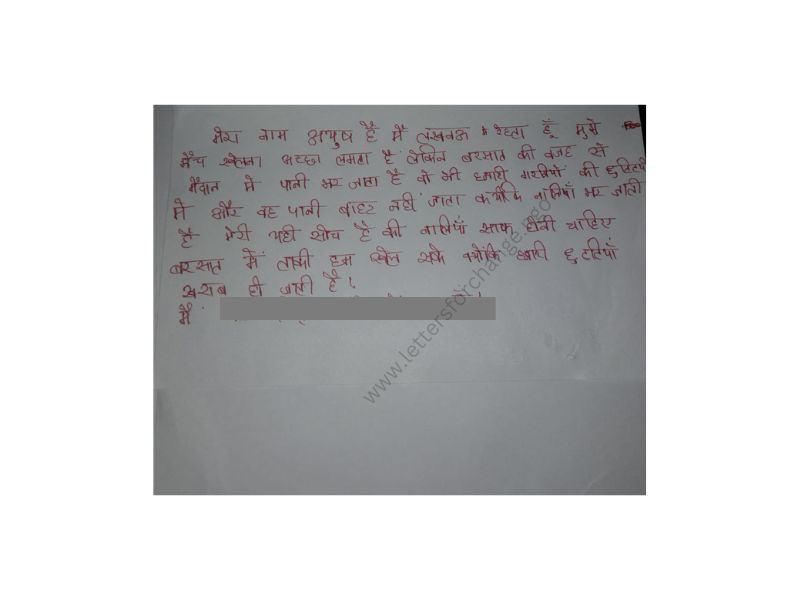 मेरा नाम आयुष है मैं लखनऊ में रहता हूँ मुझे
मैच खेलना अच्छा लगता है लेकिन बरसात की वजह से
मैदान मे पानी भर जाता है वो भी हमारी गरमियों की छुटटियों
मे और वह पानी बाहर नहीं जाता क्योंकि नालियाँ भर जाती
है मेरी यही सोच है की नालियाँ साफ होनी चाहिए
बरसात में ताकी हम खेल सके क्योंकि हमारी छुटटियाँ
खराब हो जाती है।
मैं
www.lettersforchange.ngo